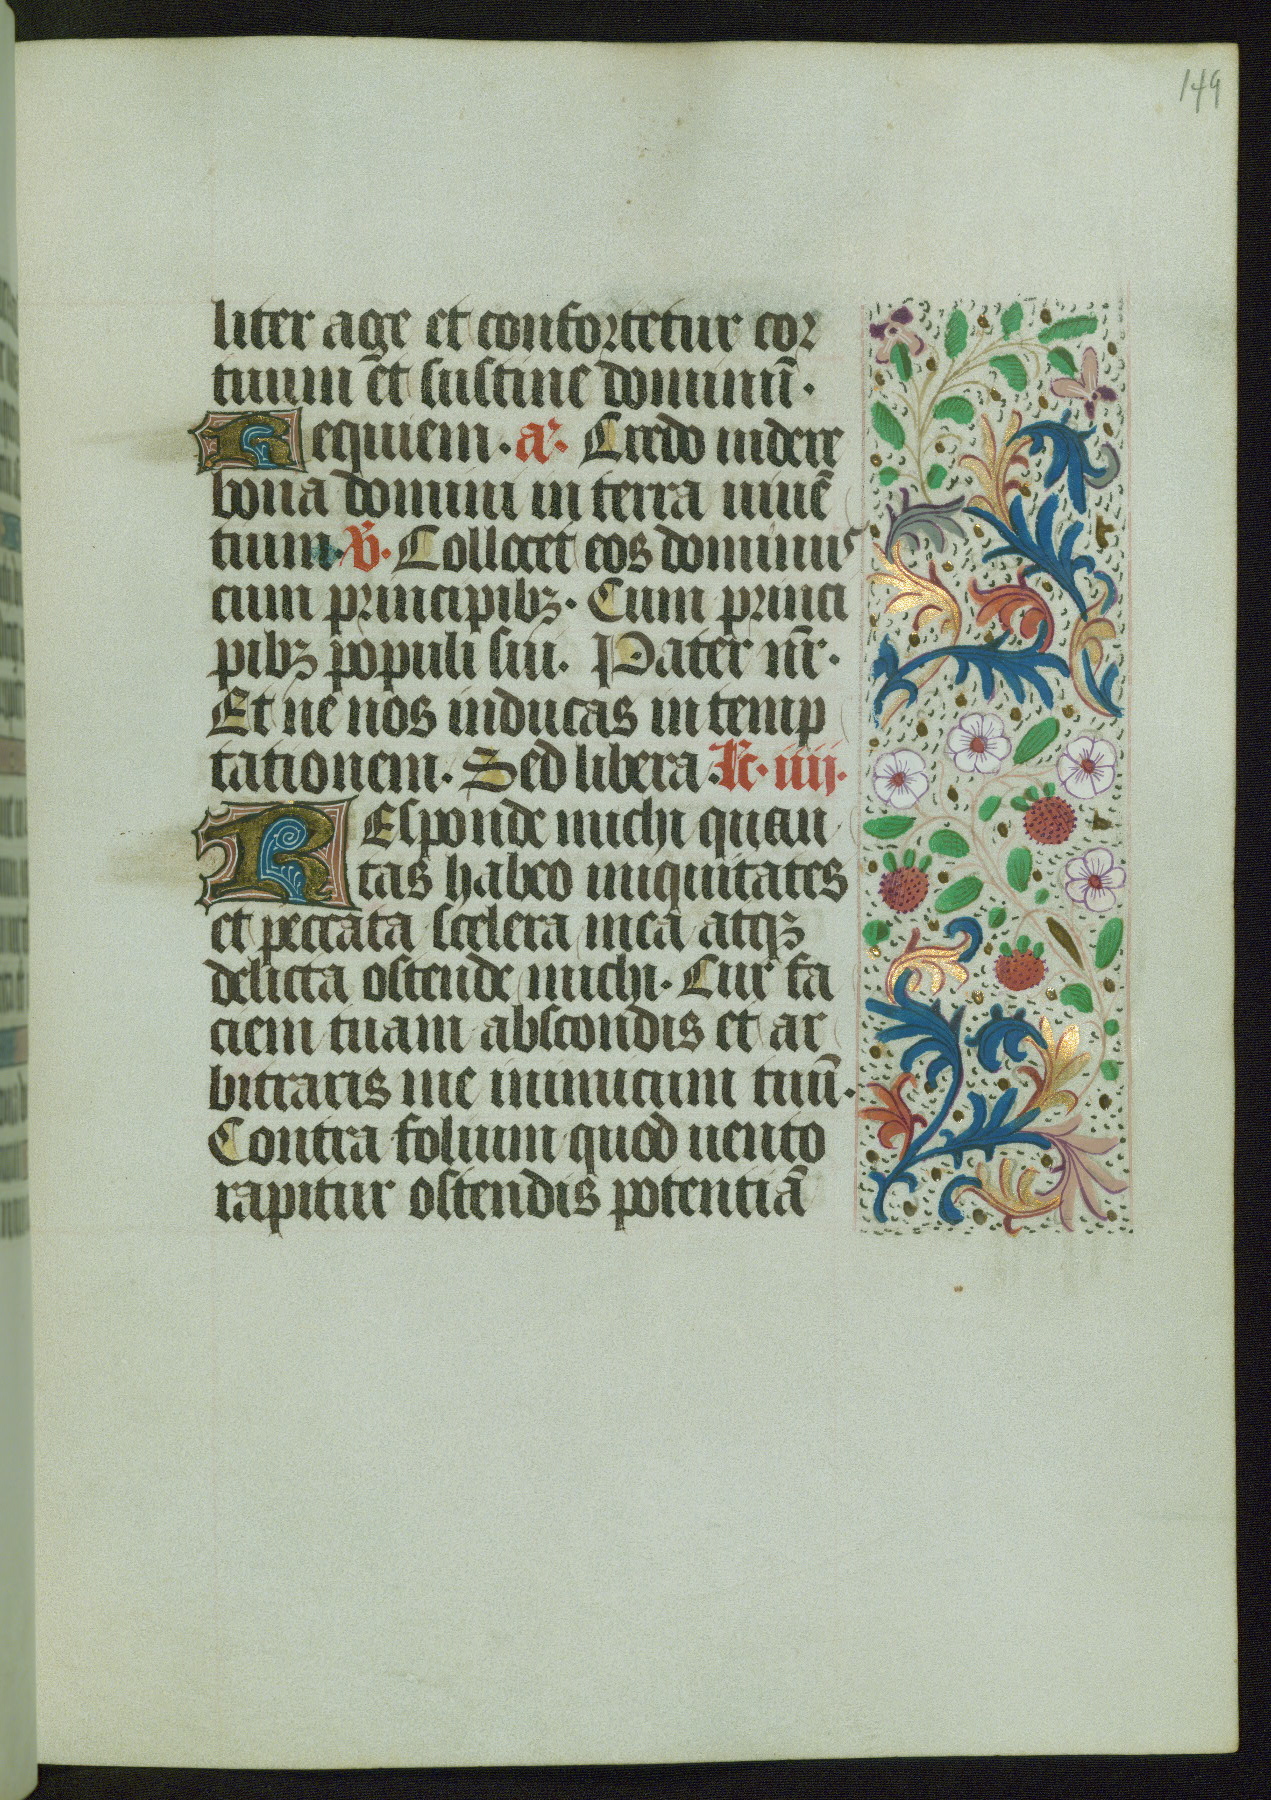 149
liter age et confortetur cor
tuum et sustine dominū.
Requiem. a. Credo uidere
bona domini in terra uiuē
tium. V. Collocet eos dominus
cum principibȝ. Cum princi
pibȝ populi sui. Pater nr̄.
Et ne nos inducas in temp
tationem. Sed libera. Lc. iiij.
REsponde michi quan
tas habeo iniquitates
et peccata scelera mea atqȝ
delicta ostende michi. Cur fa
ciem tuam abscondis et ar
bitraris me inimicum tuū.
Contra folium quod uento
rapitur ostendis potentiā